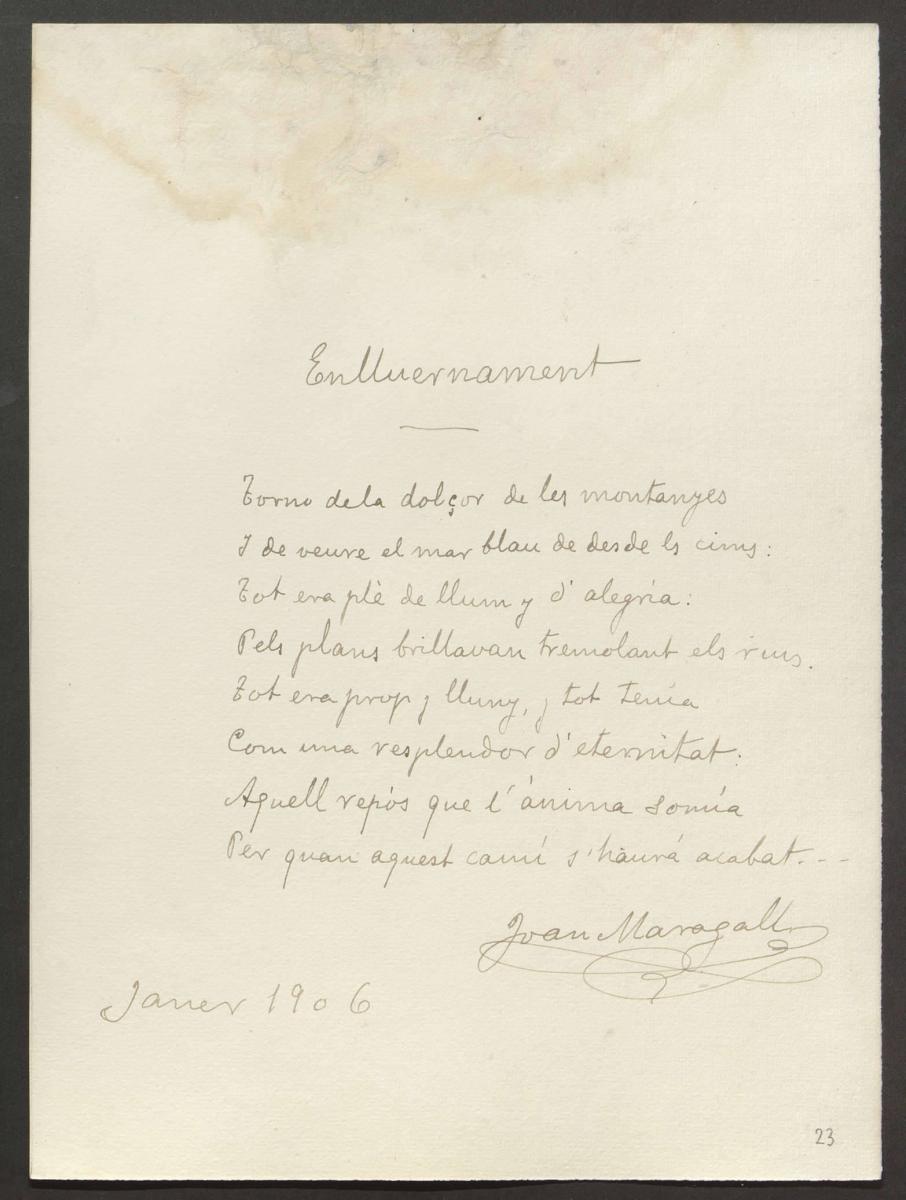 Enlluernament
Torno de la dolçor de les montanyes
I de veure el mar blau de desde ls cims:
Tot era plè de llum y d'alegria:
Pels plans brillavan tremolant els rius.
Tot era prop y lluny, y tot tenía
Com una resplendor d'eternitat:
Aquell repòs que l'ànima somía
Per quan aquest camí s'haurá acabat...
Joan Maragall
Janer 1906
23